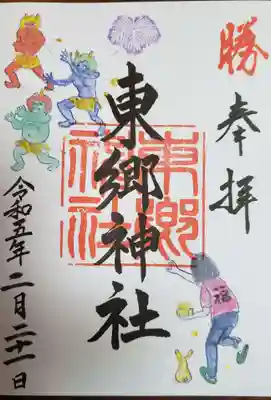 勝
奉拝
東郷神社
東郷神社
福
令和五年二月二十一日